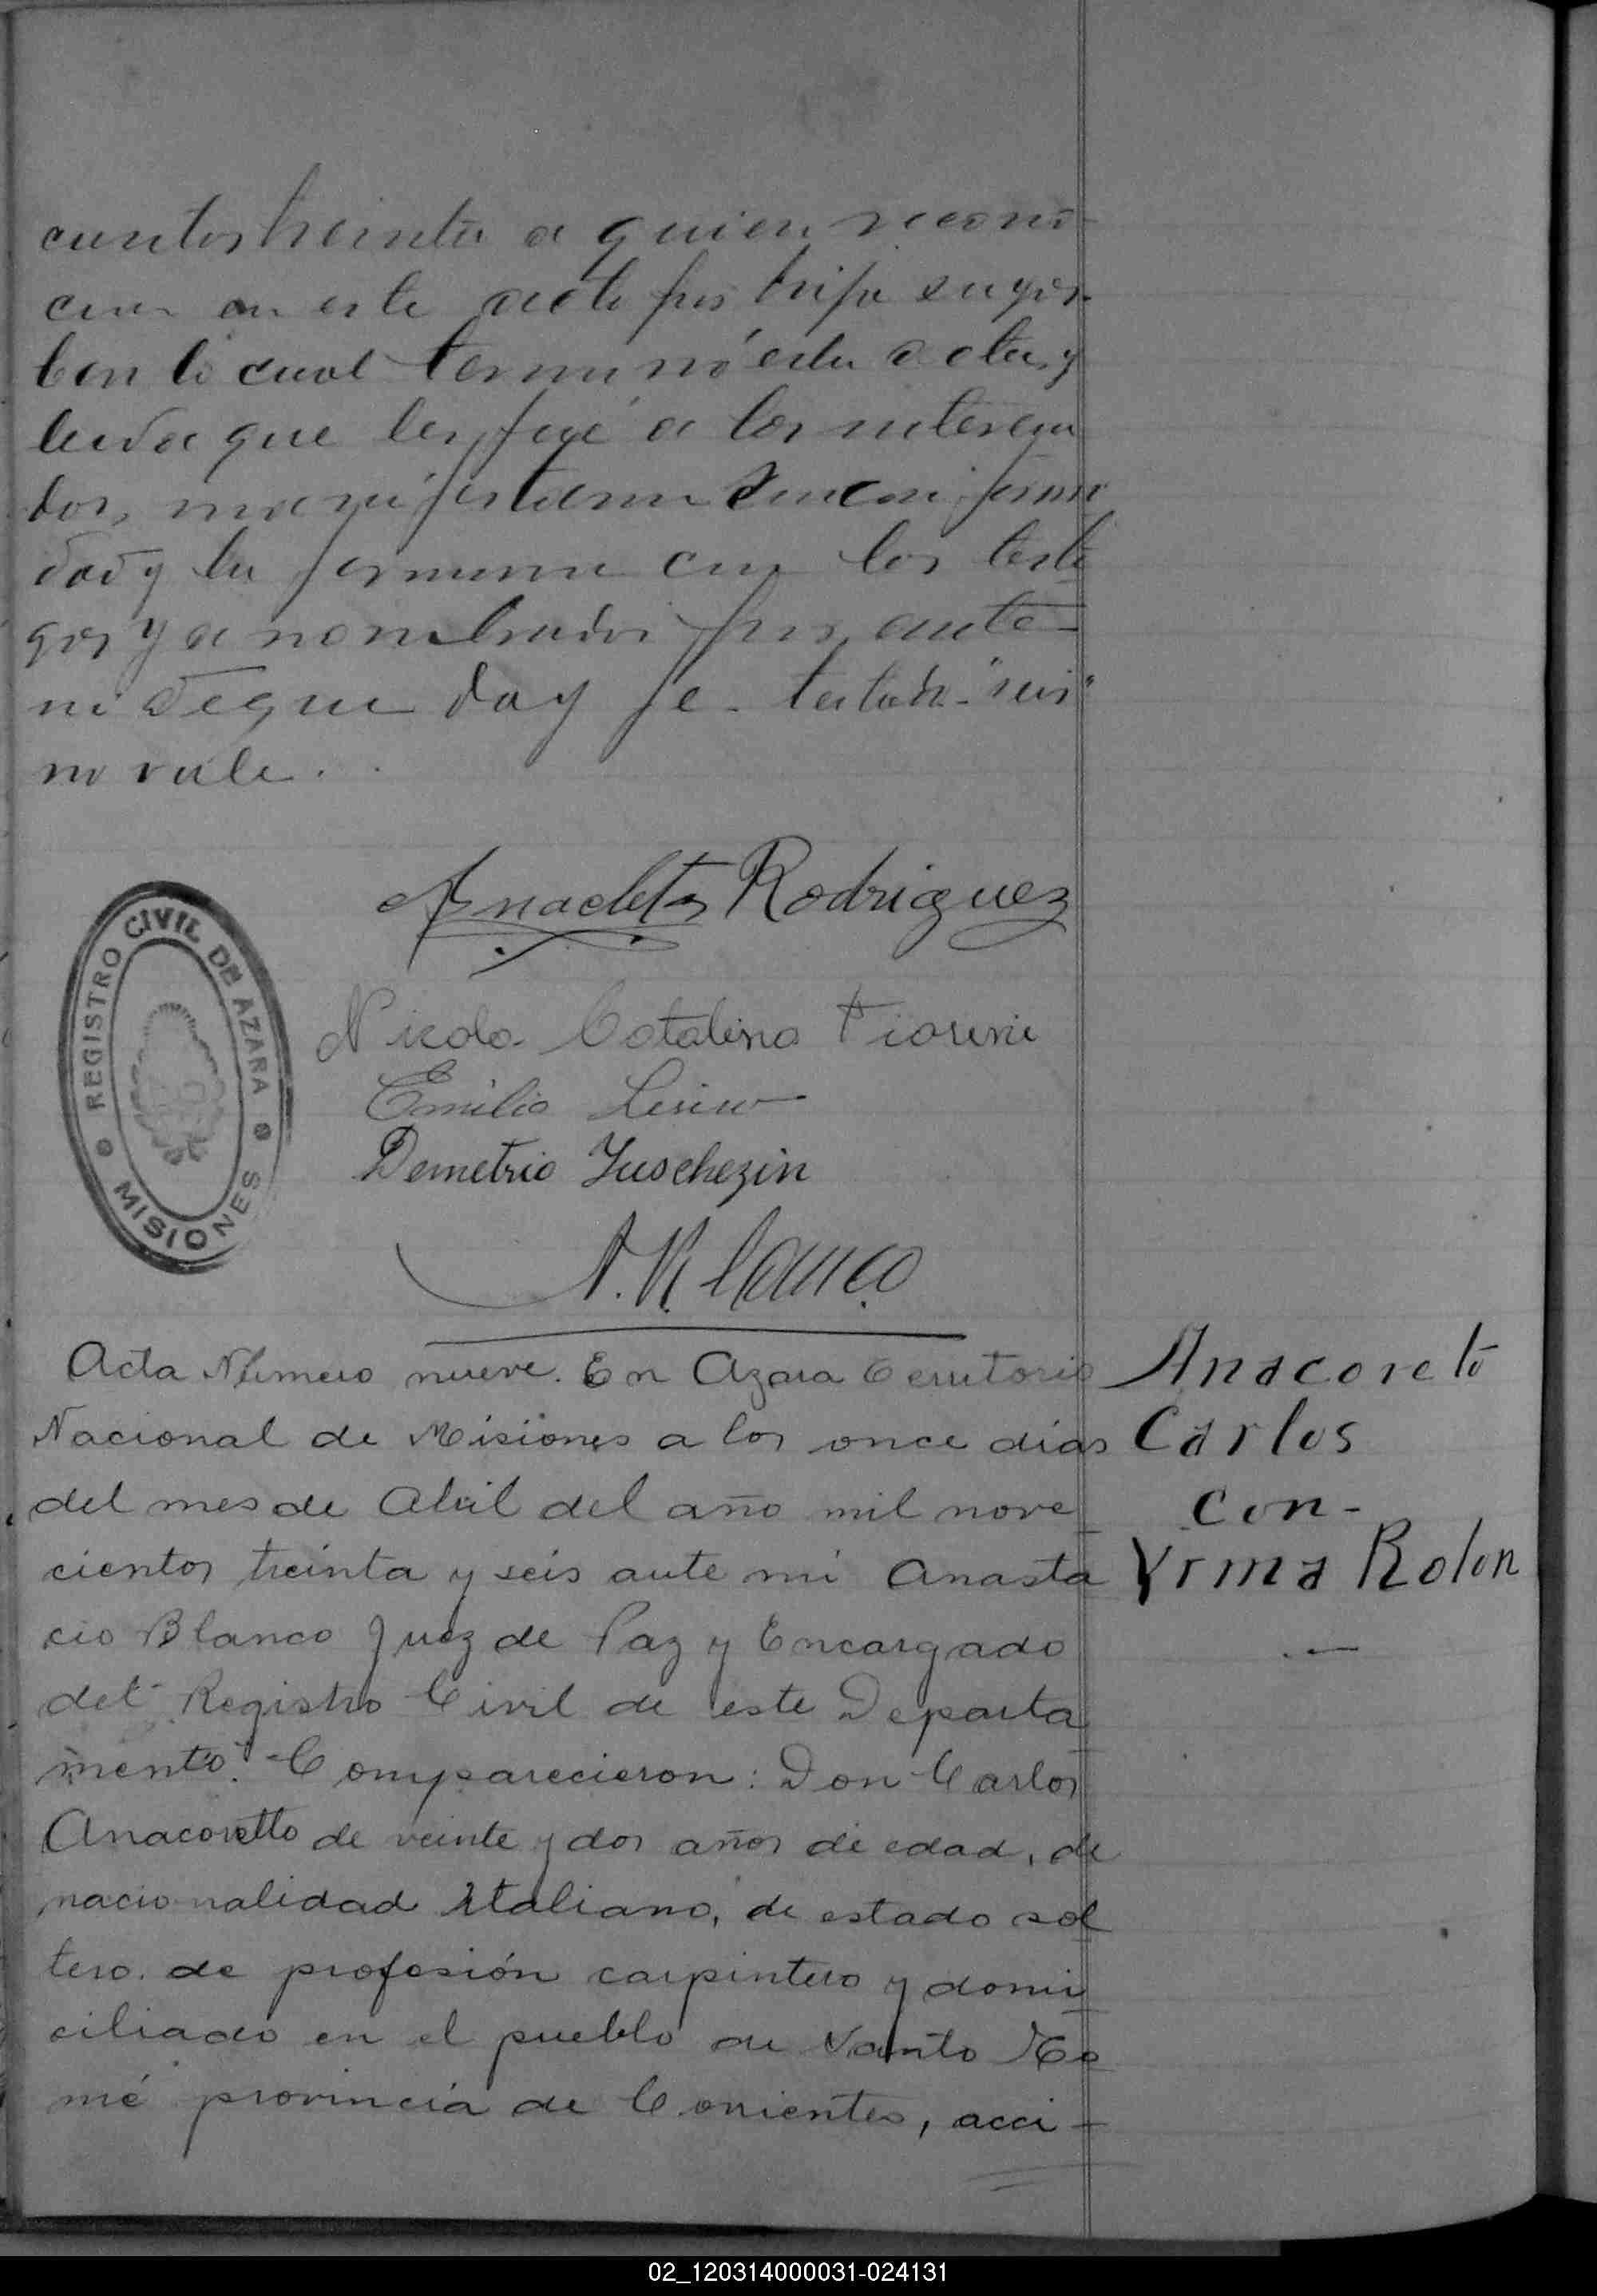 cientos treinta a quien recono-
cen en este acto por hija suya
con lo cual terminó esta acta, y
leida que les fué a los interesa
dos, manifestaron su confirmi
dad y la firmaron con los testi
gos ya nombrados por ante
mi de que doy fe. testado "seis"
no vale.
Anacleto Rodriguez
Nicola Catalina Fiorini
Emilio
Demetrio Juschezin
A. Blanco
REGISTRO CIVIL DE AZARA
MISIONES
Acta Número nueve. En Azara Territorio
Nacional de Misiones a los once días
del mes de Abril del año mil nove
cientos treinta y seis ante mi Anasta
cio Blanco Juez de Paz y Encargado
del Registro Civil de este Departa
mento. Comparecieron: Don Carlos
Anacoretto de veinte y dos años de edad, de
nacionalidad Italiano, de estado sol
tero. de profesión carpintero y domi
ciliado en el pueblo de Santo To
mé provincia de Corrientes, acci-
Anacoreto
Carlos
con-
Yrma Rolon
02_120314000031-024131